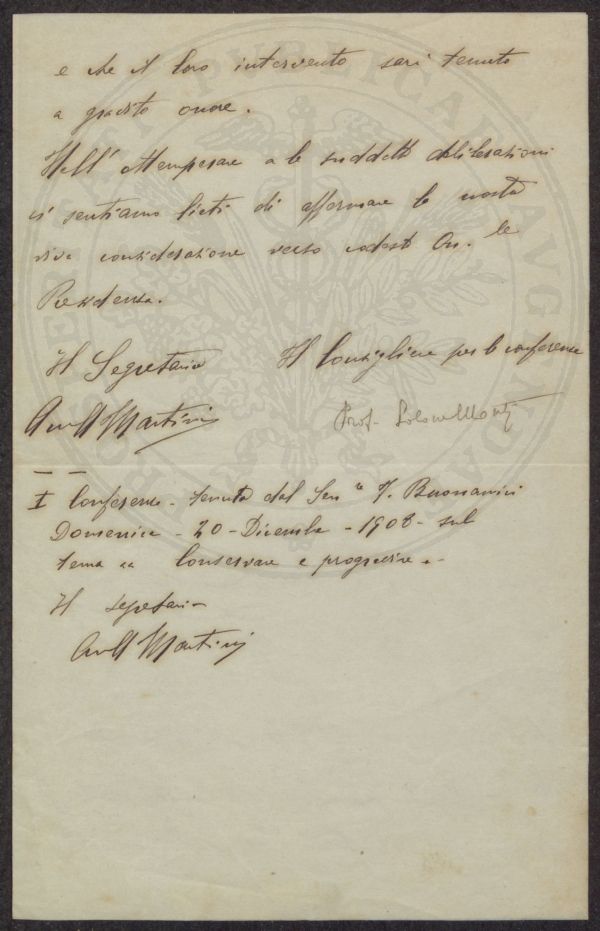 e che il loro intervento sarà tenuto
a gradito onore.
Nell' ottemperare a le suddette deliberazioni
ci sentiamo lieti di affermare la nostra
viva considerazione verso codesta On.le
Presidenza.
Il Segretario Il Consigliere per le conferenze
Martini Prof. Solone Monti
I Conferenza - tenuta dal Sen.re F. Buonamici
Domenica - 20 - Dicembre - 1908 - sul
tema « Conservare e progredire » -
Il segretario
Martini